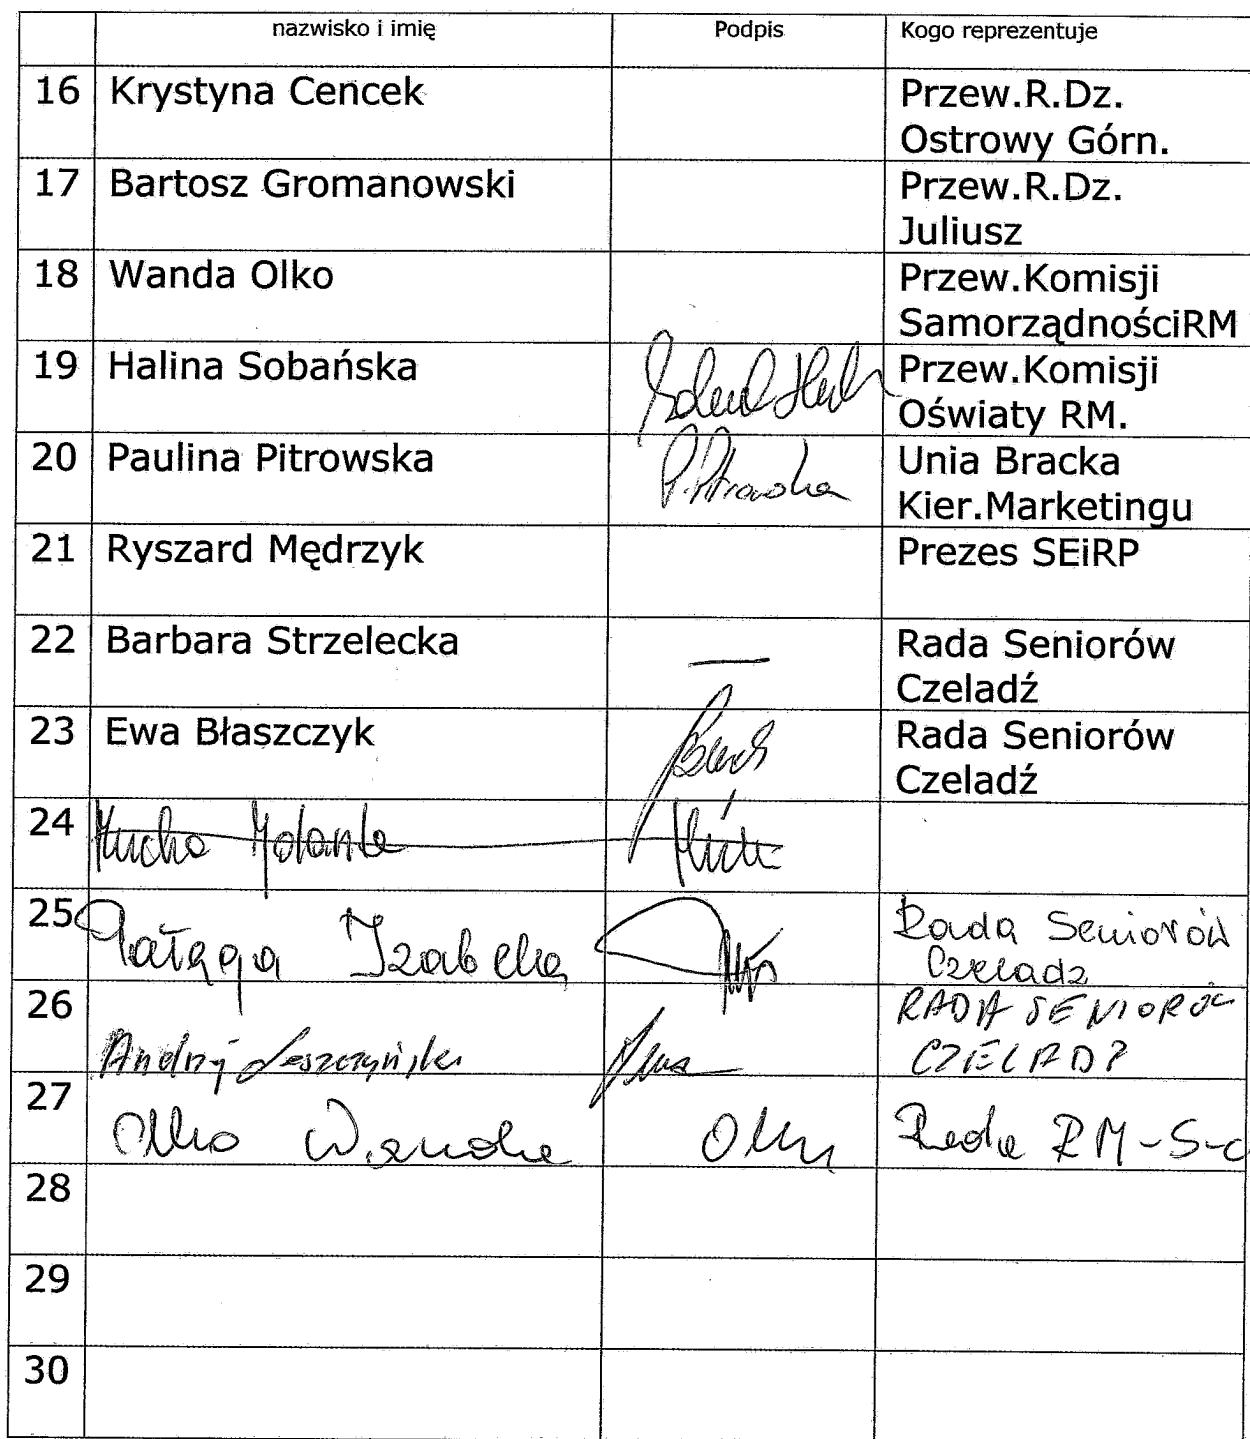 nazwisko i imię Podpis Kogo reprezentuje
16 Krystyna Cencek Przew.R.Dz.
Ostrowy Górn.
17 Bartosz Gromanowski Przew.R.Dz.
Juliusz
18 Wanda Olko Przew.Komisji
SamorządnościRM
19 Halina Sobańska Przew.Komisji
Oświaty RM.
20 Paulina Pitrowska P.Pitrowska Unia Bracka
Kier.Marketingu
21 Ryszard Mędrzyk Prezes SEiRP
22 Barbara Strzelecka — Rada Seniorów
Czeladź
23 Ewa Błaszczyk Rada Seniorów
Czeladź
24 Mucha Jolanta
25 Pałęga Izabela Rada Seniorów
Czeladz
26 Andrzej Leszczyński RADA SENIORÓW
CZELADŹ
27 Olko Wanda Olko Rada RM-S-c
28
29
30